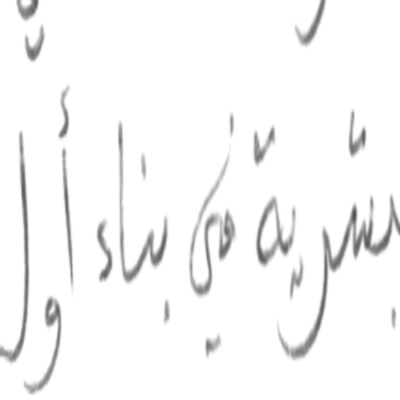 بشرية في بناء أول